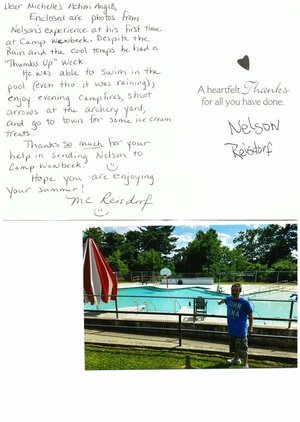 Dear Michelle's Action Angels,
Enclosed are photos from
Nelson's experience at his first time
at Camp Wawbeek. Despite the
Rain and the cool temps he had a
"Thumbs Up" week.
He was able to Swim in the
pool (even tho it was raining);
enjoy evening campfires, shoot
arrows at the archery yard,
and go to town for some ice cream
treats.
Thanks so much for your
help in sending Nelson to
Camp Wawbeek!
Hope you are enjoying
your summer!
MC Reisdorf
A heartfelt Thanks
for all you have done.
Nelson
Reisdorf